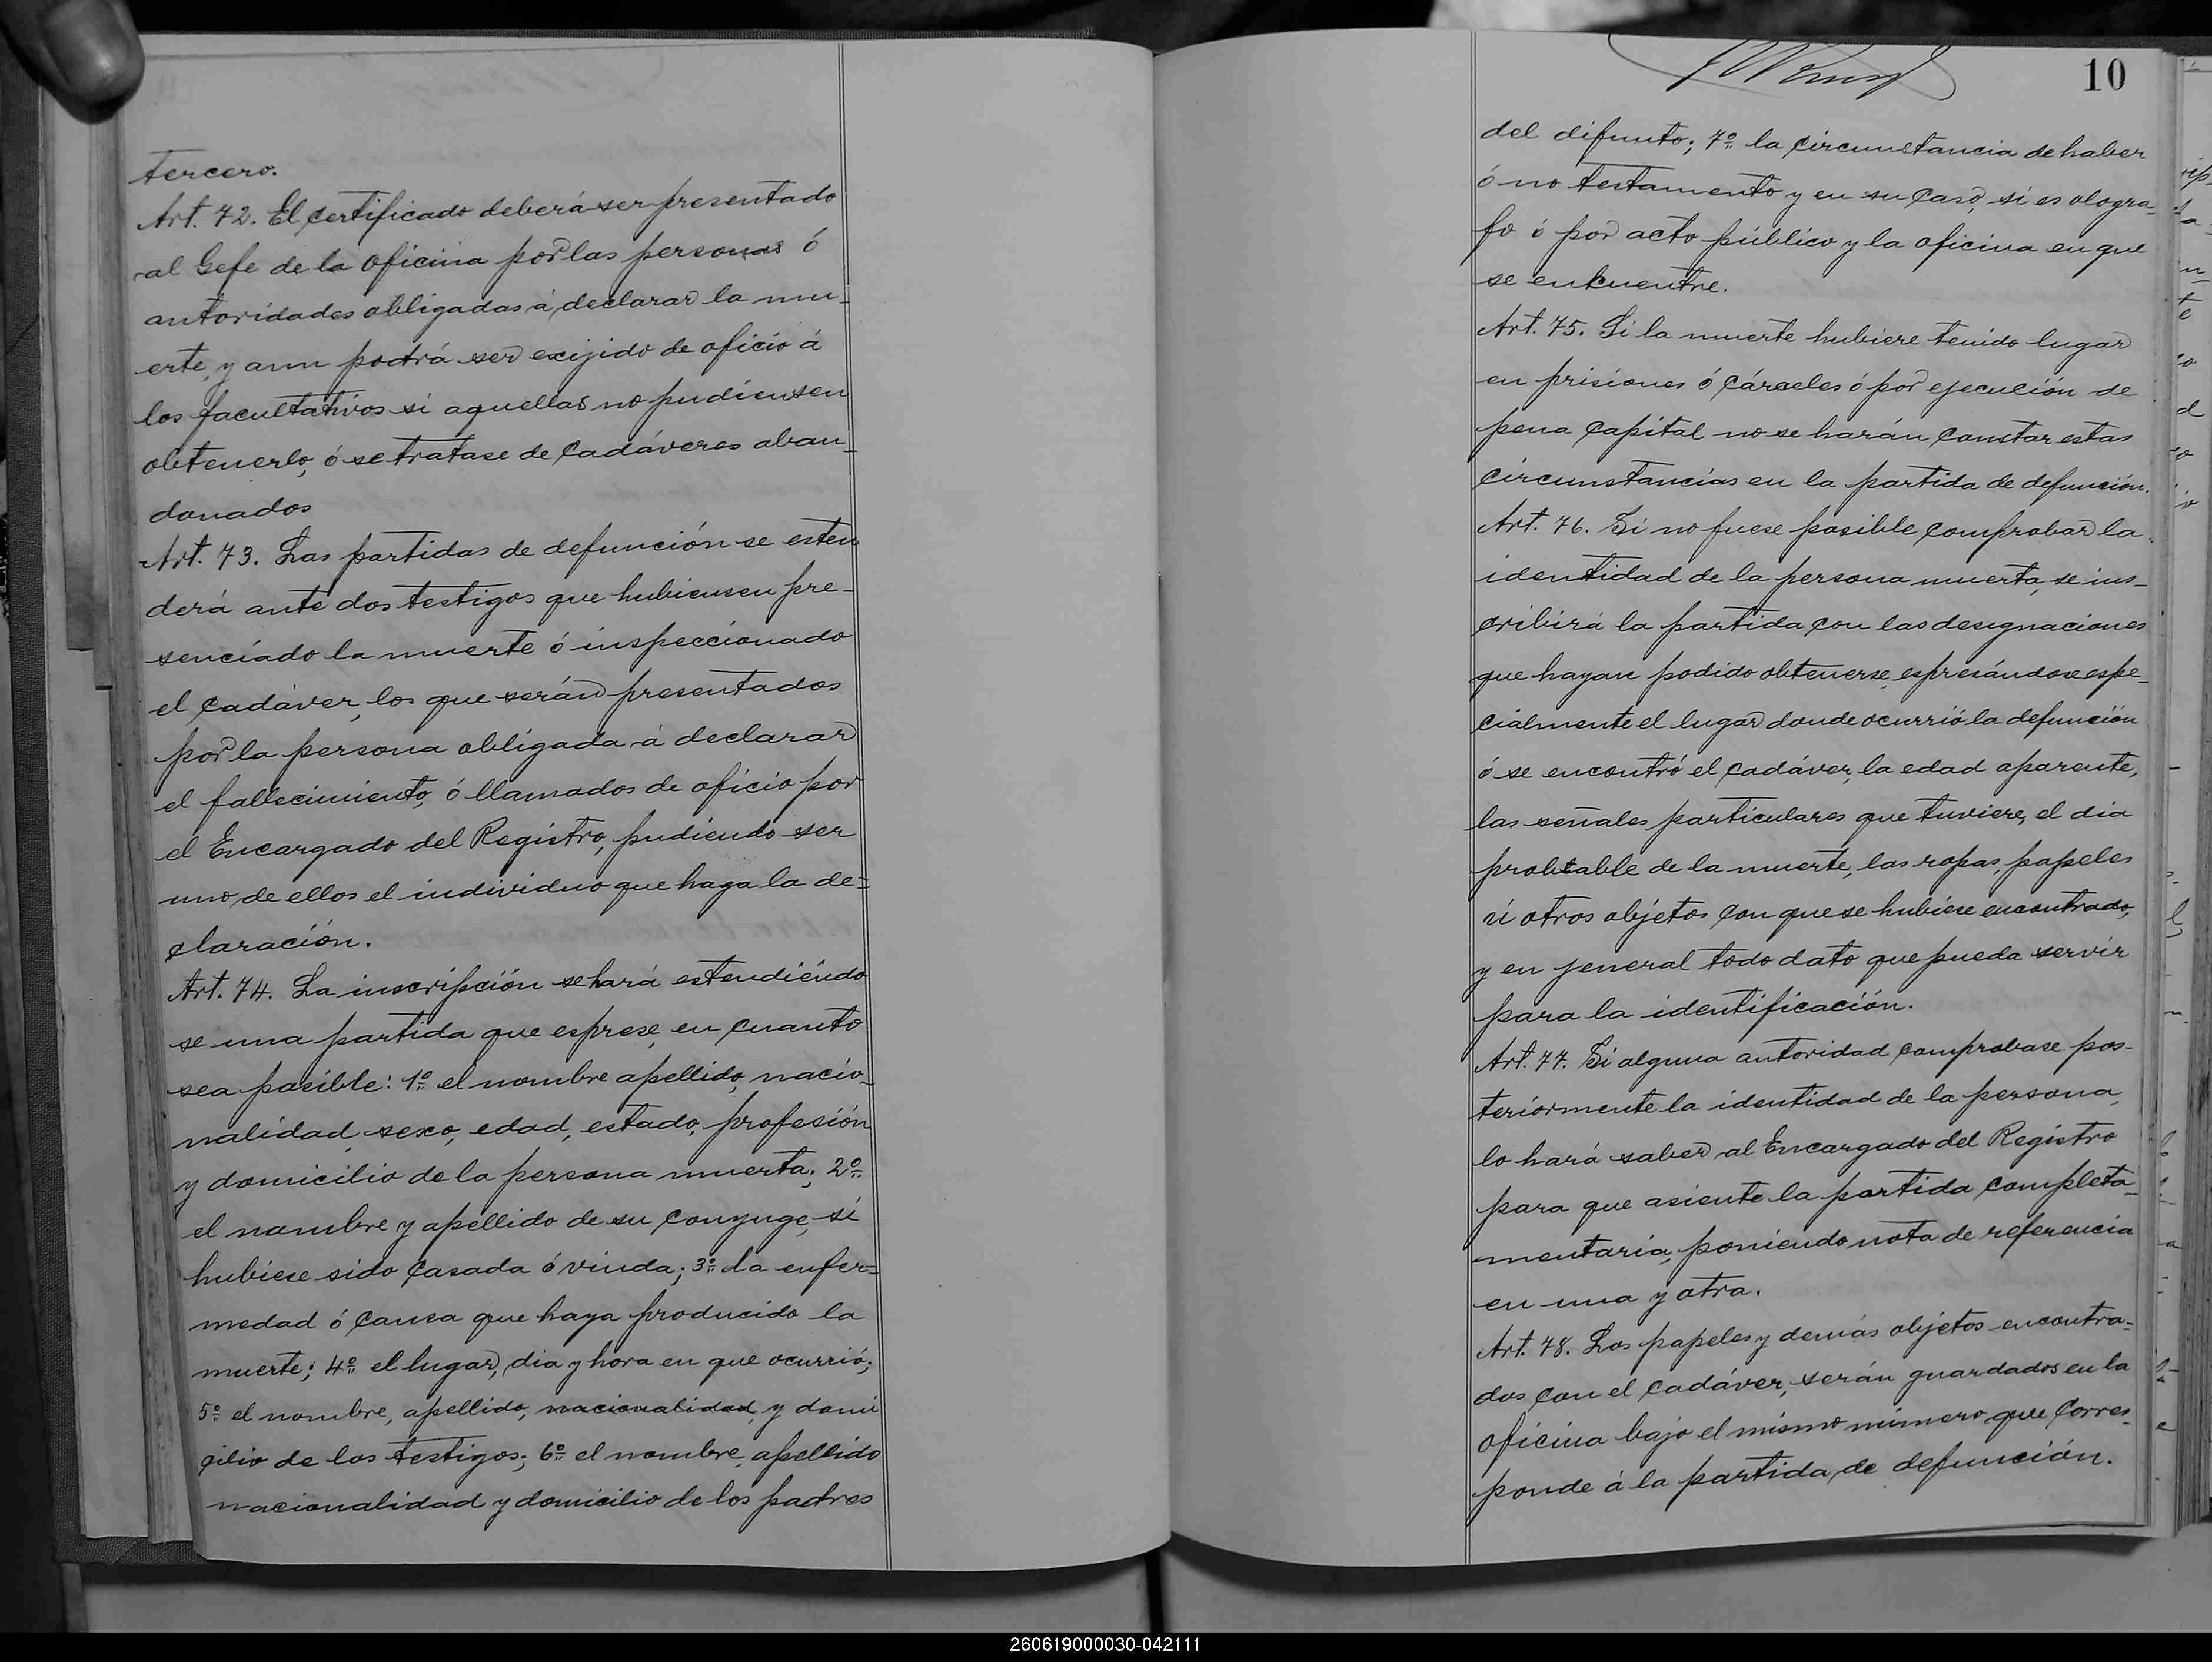 tercero.
Art. 72. El certificado deberá ser presentado
al Gefe de la oficina por las personas ó
autoridades obligadas á declarar la mu-
erte, y aun podrá ser exijido de oficio á
los facultativos si aquellas no pudiensen
obtenerlo, ó se tratase de cadáveres aban-
donados
Art. 73. Las partidas de defunción se esten
derá ante dos testigos que hubiensen pre-
senciado la muerte ó inspeccionado
el cadáver, los que serán presentados
por la persona obligada á declarar
el fallecimiento, ó llamados de oficio por
el Encargado del Registro, pudiendo ser
uno de ellos el individuo que haga la de=
claración.
Art. 74. La inscripción se hará estendiéndo
se una partida que esprese, en cuanto
sea posible: 1º el nombre apellido, nacio-
nalidad, sexo, edad, estado, profesión
y domicilio de la persona muerta; 2º
el nombre y apellido de su conyuge, si
hubiese sido casada ó viuda; 3º la enfer=
medad ó causa que haya producido la
muerte; 4º el lugar, dia y hora en que ocurrió;
5º el nombre, apellido, nacionalidad, y domi
cilio de los testigos; 6º el nombre, apellido
nacionalidad y domicilio de los padres
10
del difunto; 7º la circunstancia de haber
ó no testamento y en su caso, si es ologra-
fo ó por acto público y la oficina en que
se encuentre.
Art. 75. Si la muerte hubiere tenido lugar
en prisiones ó cárceles ó por ejecución de
pena capital no se harán constar estas
circunstancias en la partida de defunción.
Art. 76. Si no fuese posible comprobar la
identidad de la persona muerta, se ins-
cribirá la partida con las designaciones
que hayan podido obtenerse, espresándose espe-
cialmente el lugar donde ocurrió la defunción
ó se encontró el cadáver, la edad aparente,
las señales particulares que tuviere, el dia
probable de la muerte, las ropas, papeles
ú otros objetos con que se hubiese encontrado,
y en jeneral todo dato que pueda servir
para la identificación.
Art. 77. Si alguna autoridad comprobase pos-
teriormente la identidad de la persona,
lo hará saber al Encargado del Registro
para que asiente la partida completa-
mentaria, poniendo nota de referencia
en una y otra.
Art. 78. Los papeles y demás objetos encontra=
dos con el cadáver, serán guardados en la
oficina bajo el mismo número que corres-
ponde á la partida de defunción.
260619000030-042111